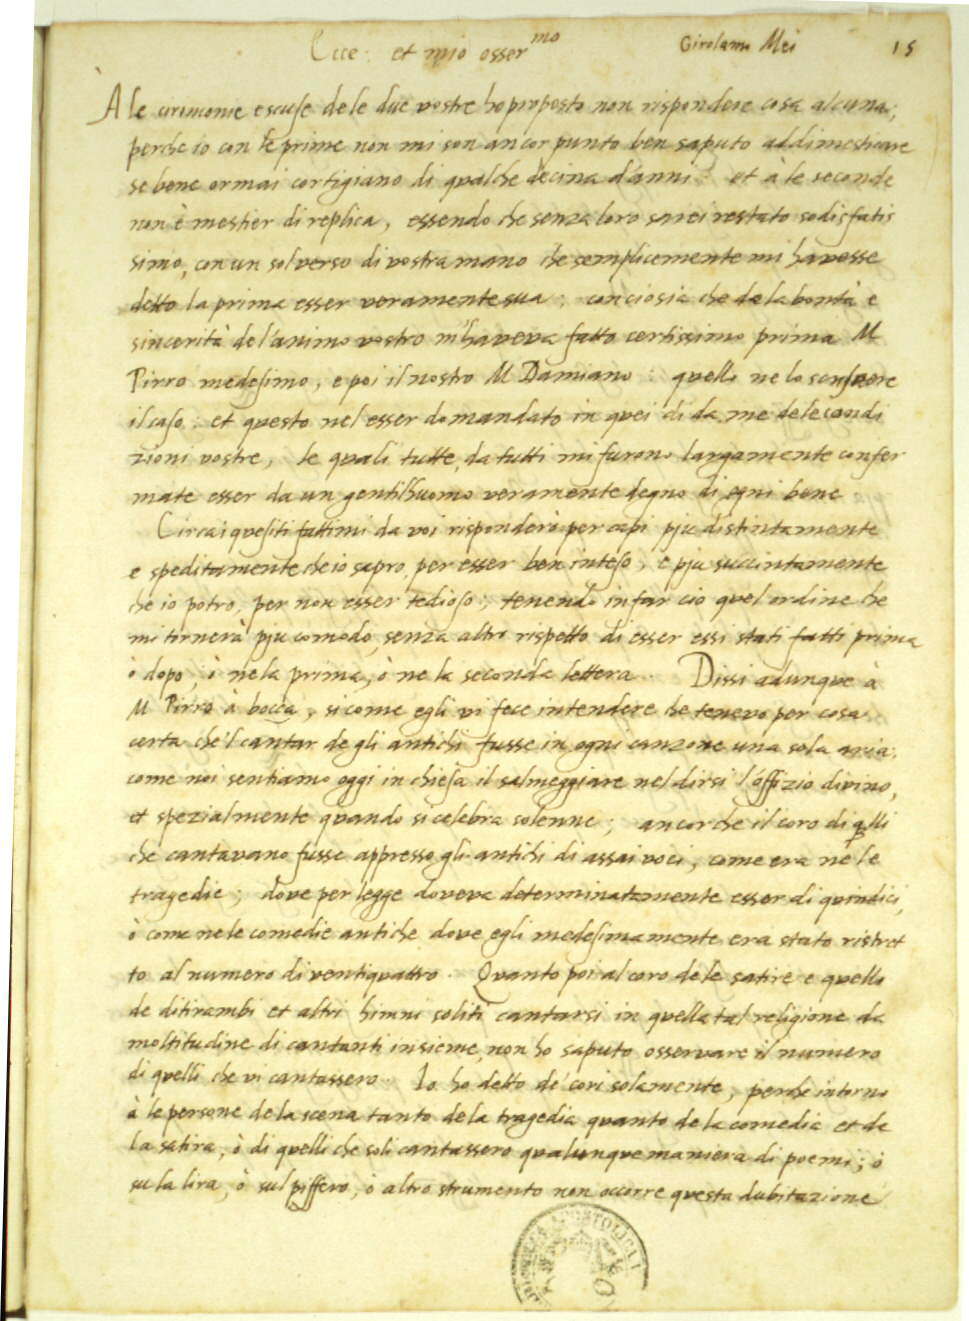 Ecce: et mio osser^mo
Girolamo Mei
15
À le cirimonie e scuse de le due vostre ho proposto non rispondere cosa alcuna;
perche io con le prime non mi son ancor punto ben saputo addimesticare
se bene ormai cortigiano di qualche decina d'anni: et à le seconde
non è mestier di replica, essendo che senza loro sarei restato sodisfatis
simo, con un sol verso di vostra mano che semplicemente mi havesse
detto la prima esser veramente sua; conciosia che de la bontà e
sincerità de l'animo vostro m'haveva fatto certissimo prima M
Pirro medesimo, e poi il nostro M Damiano: quelli ne lo
il caso: et questo nel esser domandato in quei dì da me de le condi
zioni vostre, le quali tutte, da tutti mi furono largamente confer
mate esser da un gentilhuomo veramente degno di ogni bene
Circa i quesiti fattimi da voi risponderò per capi più distintamente
e speditamente che io sapro, per esser ben inteso, e più succintamente
che io potro, per non esser tedioso; tenendo in far ciò quel ordine che
mi tornerà più comodo, senza altro rispetto di esser essi stati fatti prima
ò dopo, ò ne la prima, ò ne la seconda lettera. Dissi adunque à
M Pirro à bocca, si come egli vi fece intendere che tenevo per cosa
certa che'l cantar degli antichi fusse in ogni canzone una sola aria:
come noi sentiamo oggi in chiesa il salmeggiare nel dirsi l'offizio divino,
et spezialmente quando si celebra solenne; ancor che il coro di qlli
che cantavano fusse appresso gli antichi di assai voci, come era ne le
tragedie; dove per legge doveva determinatamente esser di quindici,
ò come ne le comedie antiche dove egli medesimamente era stato ristret
to al numero di ventiquattro. Quanto poi al coro de le satire e quello
de ditirambi et altri himni soliti cantarsi in quella tal religione da
moltitudine di cantanti insieme, non ho saputo osservare il numero
di quelli che vi cantassero. Io ho detto de' cori solamente, perche intorno
à le persone de la scena tanto de la tragedia quanto de la comedia et de
la satira, ò di quelli che soli cantassero qualunque maniera di poemi; ò
su la lira, ò sul piffero, ò altro strumento non occorre questa dubitazione